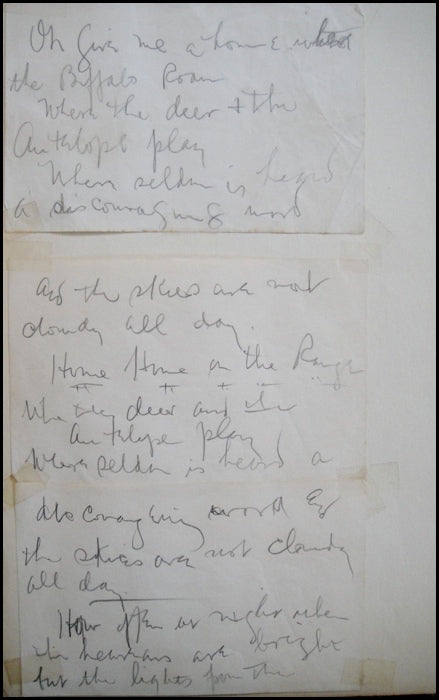 Oh Give me a home where
the Buffalo Roam
Where the deer + the
Antelope play
Where seldom is heard
a discouraging word
And the skies are not
cloudy all day.
Home Home on the Range
Where the deer and the
antelope play
Where seldom is heard a
discouraging word &
the skies are not cloudy
all day.
How often at night when
the heavens are bright
for the lights from the